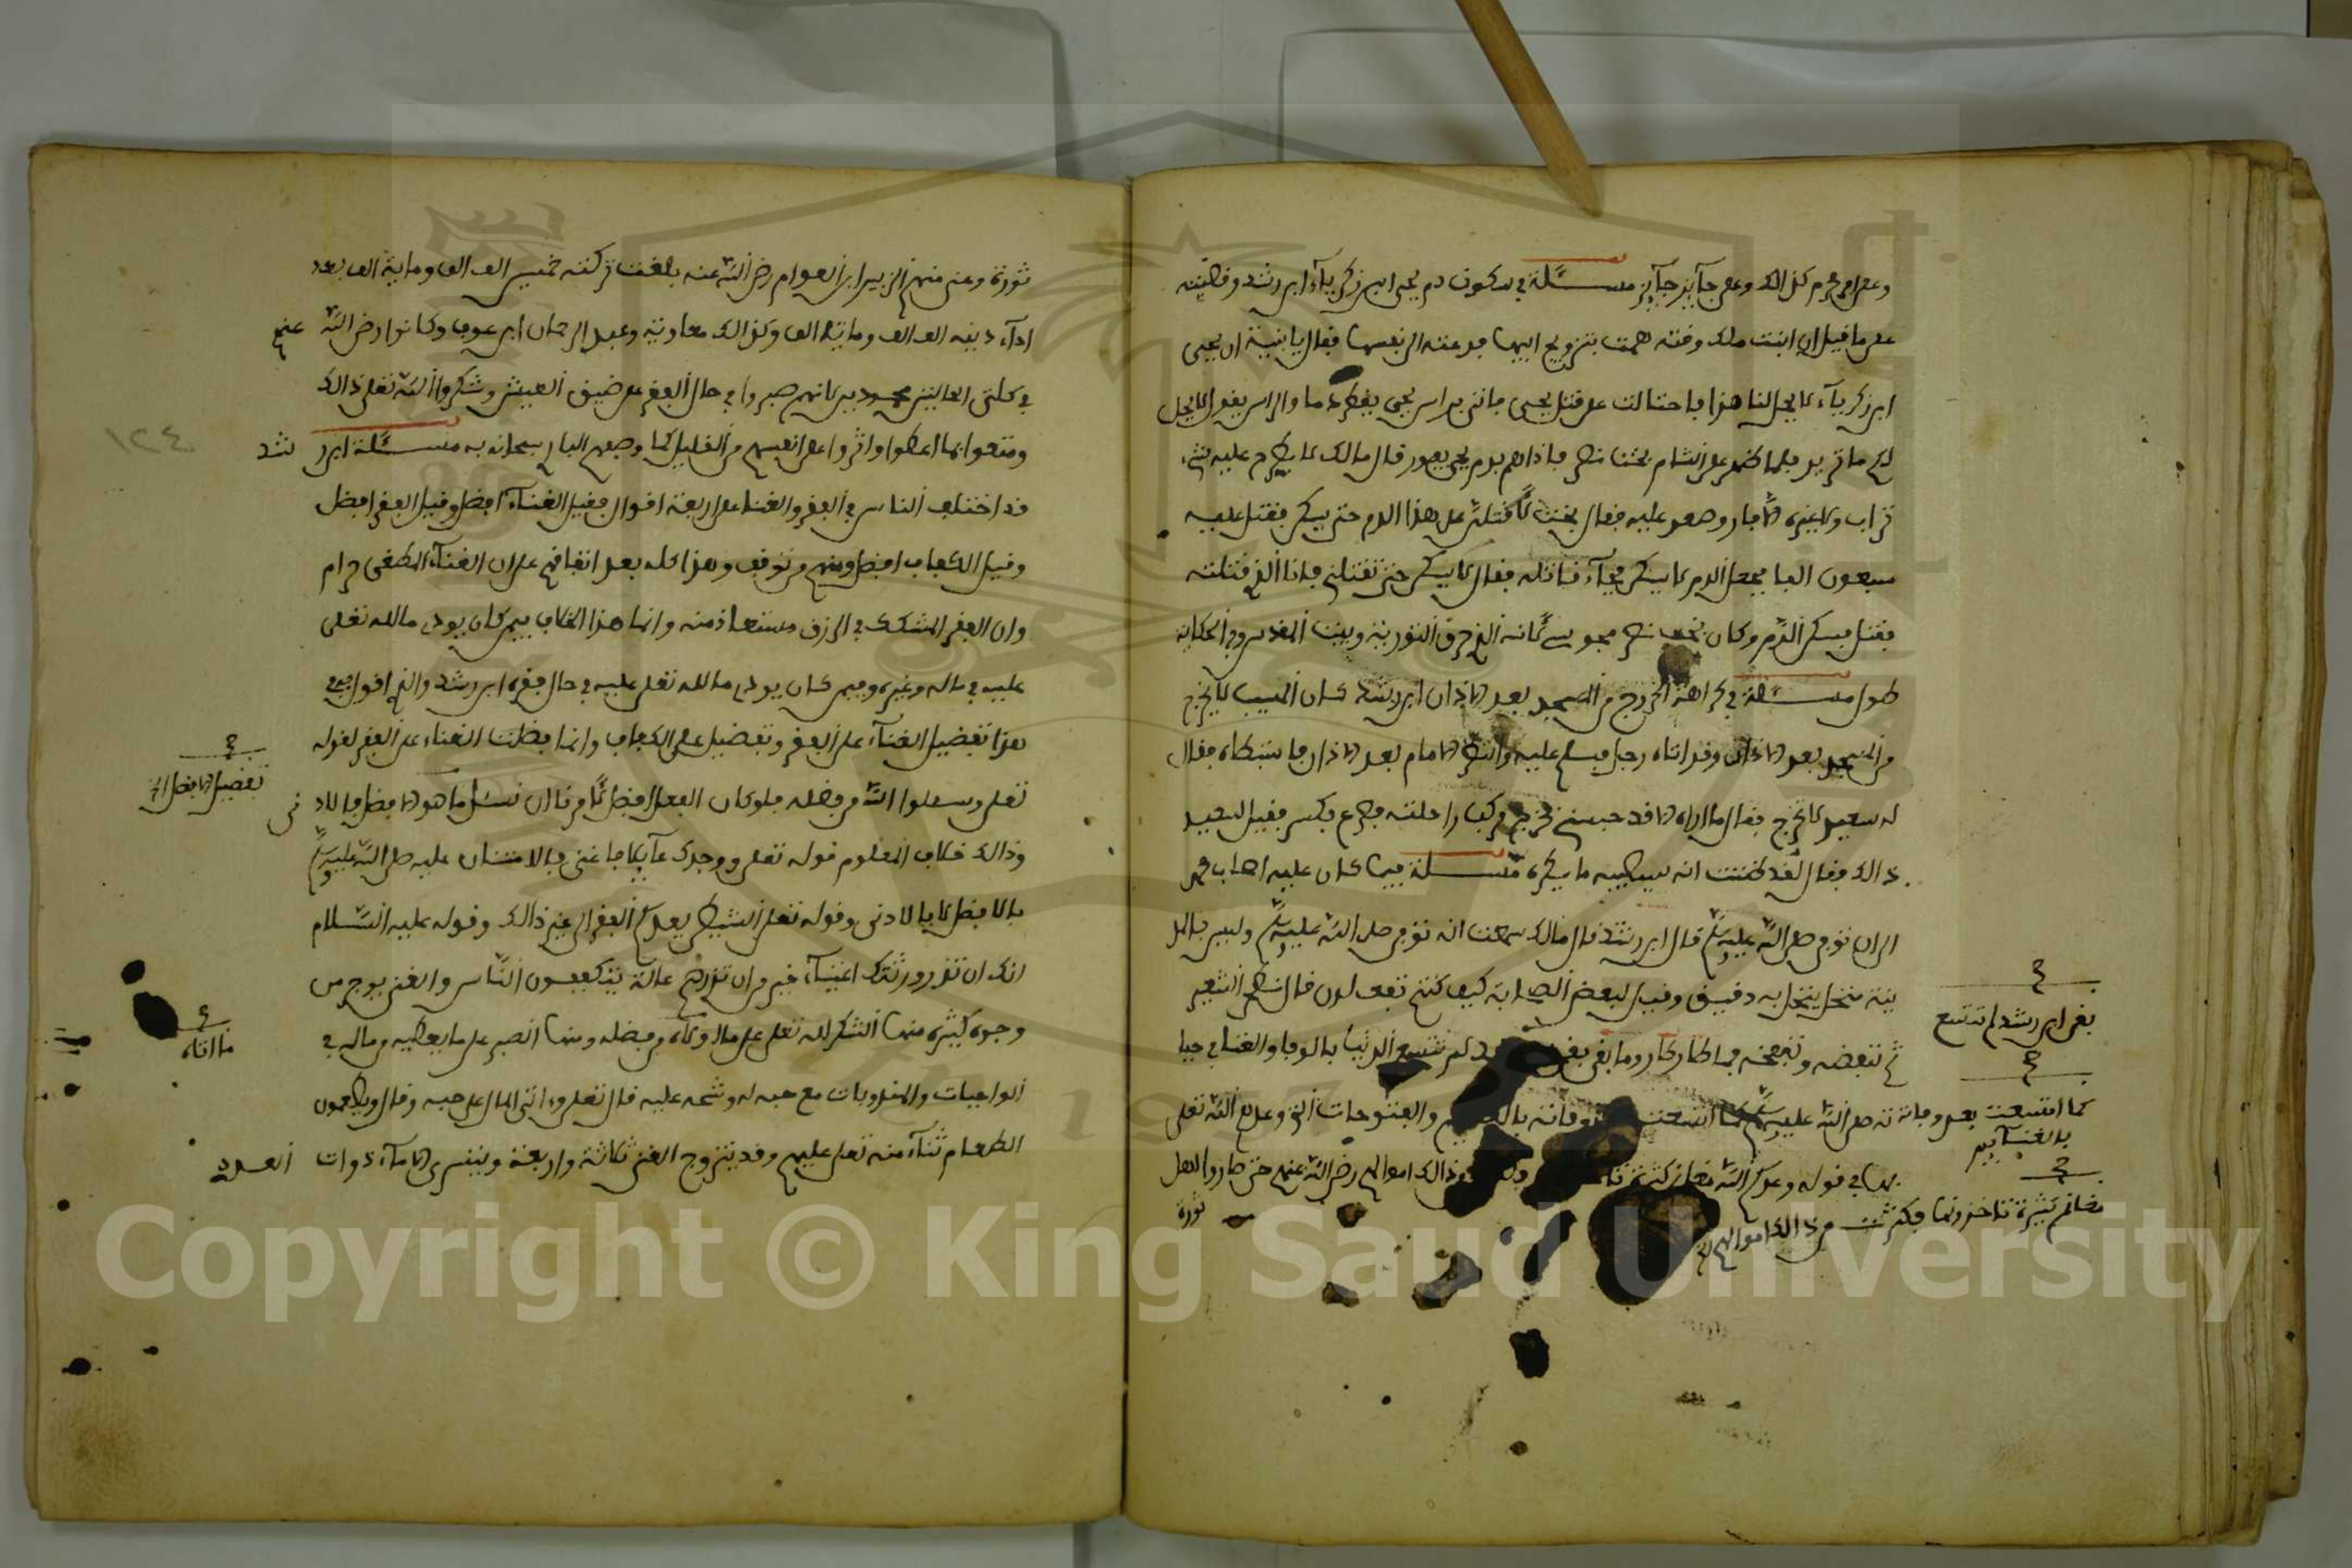 وعلى محرم كذالك وعلى جآيز جآيز مسئلة في سكون دم يحيى ابن زكريآء ابن رشد وقصيته
على ما قيل ان ابنت ملك وقته همت بتزويج ابيها فدعته الى نفسها فقال يا بنية ان يحيى
ابن زكريآء لا يحل لنا هذا فاحتالت على قتل يحيى فاتي براس يحيى يقطر دما والراس يقول لا يحل
لك ما تريد فلما ظهر على الشام بختنصر فاذا هم بدم يحيى يفور قال مالك لا يطرح عليه شيء
تراب ولا غيره الا فار وصعد عليه فقال بخت لأقتلن على هذا الدم حتى يسكن فقتل عليه
سبعون الفا فجعل الدم لا يسكن فجآء قاتله فقال لا يسكن حتى تقتلني فانا الذي قتلته
فقتل فسكن الدم وكان بخت نصر مجوسي لانه الذي حرق التورية وبيت المقدس وفي الحكاية
طول مسئلة في كراهة الخروج من المسجد بعد الاذان ابن رشد كان المسيب لا يخرج
من المسجد بعد الاذان وقد اتاه رجل فسلم عليه وانتظر الامام بعد الاذان فاستبطاه فقال
له سعيد لا تخرج فقال ما اراه الا قد حبسني فخرج فركب راحلته فصرع فكسر فقيل لسعيد
ذالك فقال لقد ظننت انه سيصيبه ما يكره مسئلة فيما كان عليه اصحاب محمد
الى ان توفي صلى الله عليه وسلم قال ابن رشد قال مالك سمعت انه توفي صلى الله عليه وسلم وليس بالمد
ينة منخل ينخل به دقيق وقيل لبعض الصحابة كيف كنتم تفعلون قال نطحن الشعير
ثم ننفضه وننفخه فما طار طار وما بقي بقي لم تتسع الدنيا بالوفا والغنا في حيا
بقي ابن رشد لم تتسع
كما اتسعت بعد وفاته صلى الله عليه وسلم كما اتسعت وفاته والفتوحات التي وعدهم الله تعلى
بالغنآيم
بها في قوله وعدكم الله مغانم كثيرة وذالك اموالهم رضي الله عنهم حتى صاروا اهل
مغانم كثيرة تاخذونها فكثرت من ذالك اموالهم
ثورة
ثورة وغنى منهم الزبير ابن العوام رضي الله عنه بلغت تركته خمسين الف الف ومايتة الف بعد
ادآء دينه الف الف ومايتا الف وكذالك معاوية وعبد الرحمان ابن عوف وكانوا رضي الله عنهم
في كلتى الحالتين محمودين لانهم صبروا في حال الفقر على ضيق العيش وشكروا الله تعلى ذالك
ومتعوا بما اعطوا واثروا على انفسهم من القليل كما وصفهم البار سبحانه به مسئلة ابن رشد
قد اختلف الناس في الفقر والغنا على اربعة اقوال فقيل الغنآء افضل وقيل الفقر افضل
وقيل الكفاف افضل ومنهم من توقف وهذا كله بعد اتفاقهم على ان الغنآء المطغي حرام
وان الفقر المشكك في الرزق مستعاذ منه وانما هذا الخلاف فيمن كان يودي ما لله تعلى
عليه في ماله وغيره وفيمن كان يودي ما لله تعلى عليه في حال فقره ابن رشد والذي اقول في
هذا تفضيل الغنآء على الفقر وتفضيل على الكفاف وانما فضلت الغناء على الفقر لقوله
تعلى وسعلوا الله من فضله فلو كان الفعل افضل لامرنا ان نسئل ما هو الافضل فالادنى
تفضيل الافضل الى
وذالك خلاف المعلوم قوله تعلى ووجدك عآيلا فاغنى فالامتنان عليه صلى الله عليه وسلم
بالافضل لا بالادنى وقوله تعلى الشيطان يعدكم الفقر الى غير ذالك وقوله عليه السلام
انك ان تذر ورثتك اغنيآء خير من ان تذرهم عالة يتكففون الناس والغني يوجر من
وجوه كثيرة منها الشكر لله تعلى على ما اولاه من فضله ومنها الصبر على ما يعطيه من ماله في
ما اتاه
الواجبات والمندوبات مع حبه له وشحه عليه قال تعلى وءاتى المال على حبه وقال ويطعمون
الطعام ثنآء منه تعلى عليهم وقد يتزوج الغني ثلاثة واربعة ويتسرى الامآء ذوات العدد
١٢٤
Copyright © King Saud University
1957